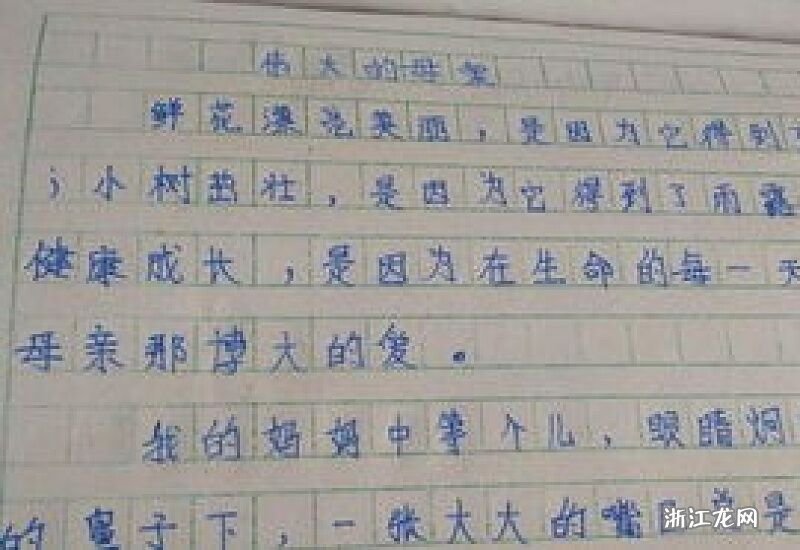 伟大的母亲
鲜花漂亮美丽，是因为它得到
；小树茁壮，是因为它得到了雨露
健康成长，是因为在生命的每一天
母亲那博大的爱。
我的妈妈中等个儿，眼睛炯
的鼻子下，一张大大的嘴巴总是
浙江龙网